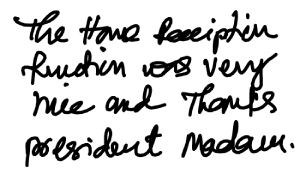 The Home Reception
function was very
nice and Thanks
president Madam.